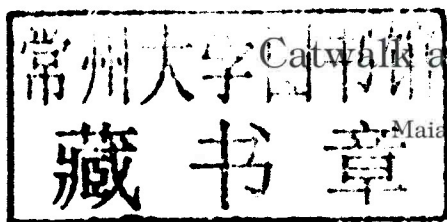 常州大学图书馆
Catwalk a
藏书章
Maia